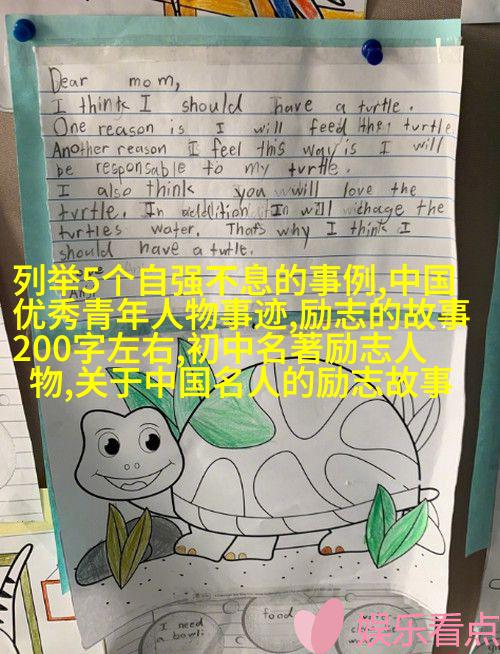 Dear mom,
I think I should have a turtle.
One reason is I will feed the turtle.
Another reason I feel this way is I will
be responsable to my turtle.
I also think you will love the
turtle. In addition I will chage the
turtles water. Thats why I think I
should have a turtle.
列举5个自强不息的事例,中国
优秀青年人物事迹,励志的故事
200字左右,初中名著励志人
物,关于中国名人的励志故事
I need
a bowl
food
娱乐看点